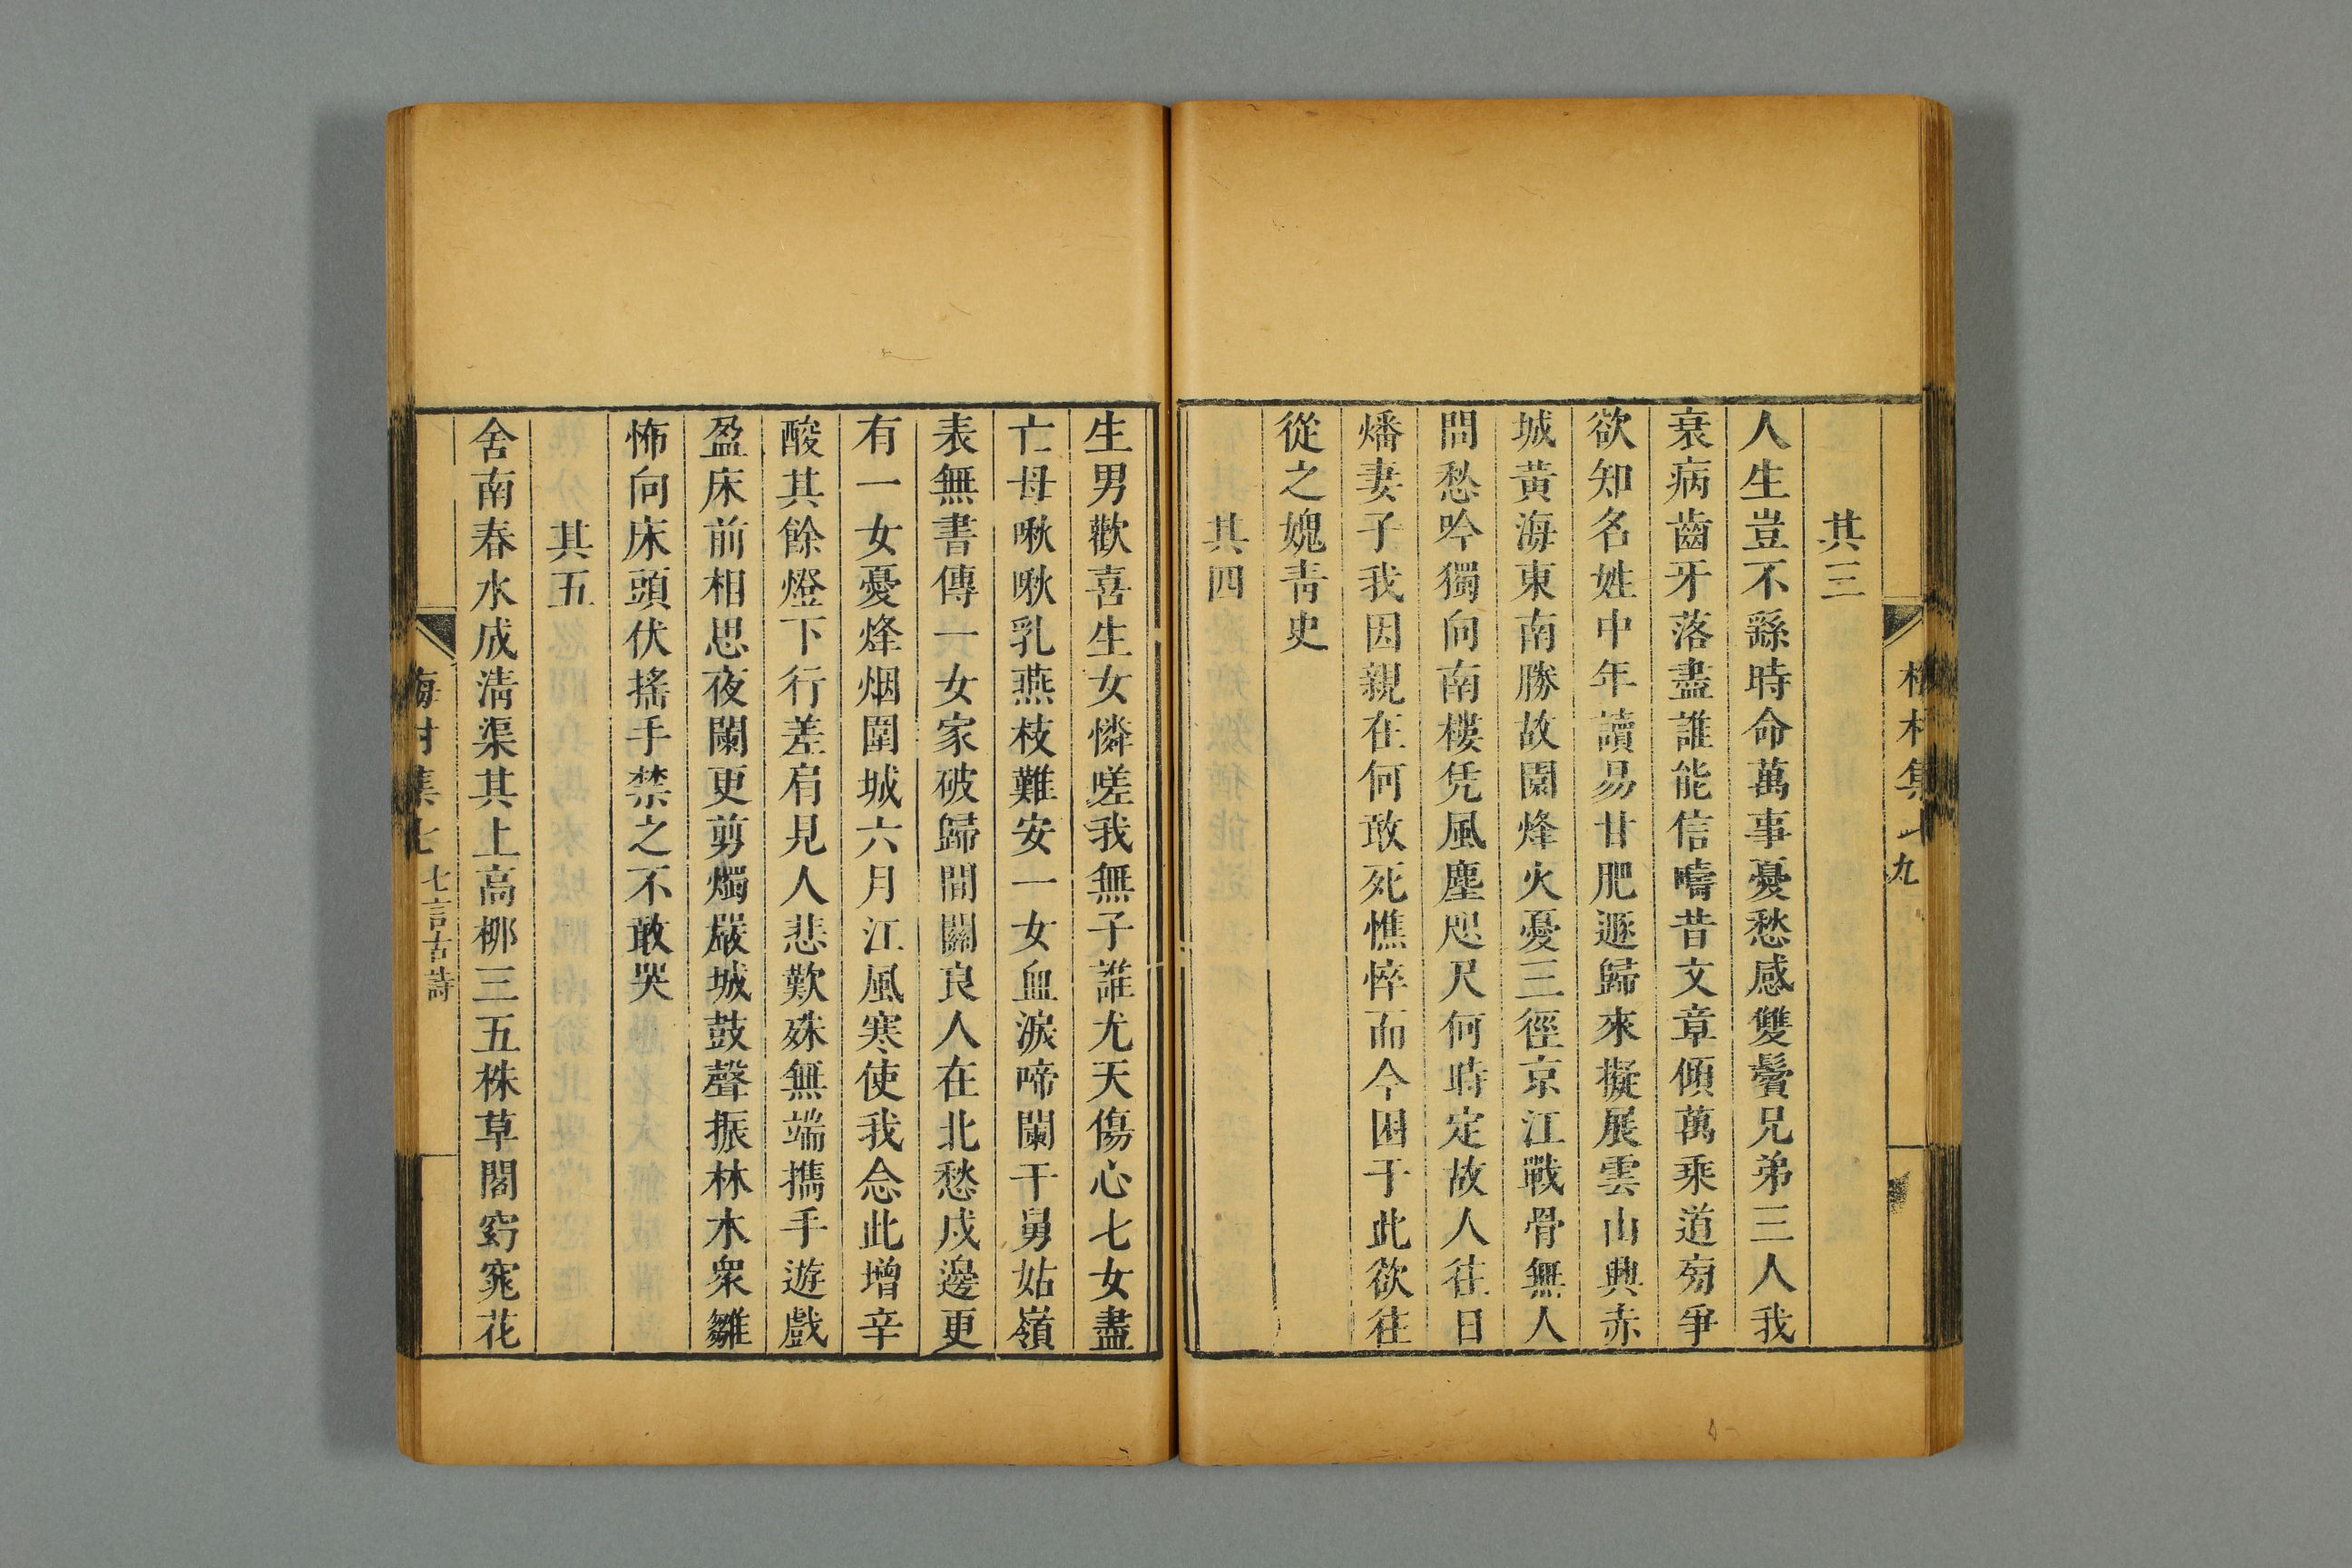 其三
人生豈不繇時命萬事憂愁感雙鬢兄弟三人我
衰病齒牙落盡誰能信疇昔文章傾萬乘道旁爭
欲知名姓中年讀易甘肥遯歸來擬展雲山興赤
城黃海東南勝故園烽火憂三徑京江戰骨無人
問愁吟獨向南樓凭風塵咫尺何時定故人往日
燔妻子我因親在何敢死憔悴而今困于此欲往
從之媿青史
其四
生男歡喜生女憐嗟我無子誰尤天傷心七女盡
亡母啾啾乳燕枝難安一女血淚啼闌干舅姑嶺
表無書傳一女家破歸間關良人在北愁戍邊更
有一女憂烽烟圍城六月江風寒使我念此增辛
酸其餘燈下行差肩見人悲歎殊無端攜手遊戲
盈床前相思夜闌更剪燭嚴城鼓聲振林木衆雛
怖向床頭伏搖手禁之不敢哭
其五
舍南春水成淸渠其上高桺三五株草閣窈窕花
梅村集七 七言古詩
九